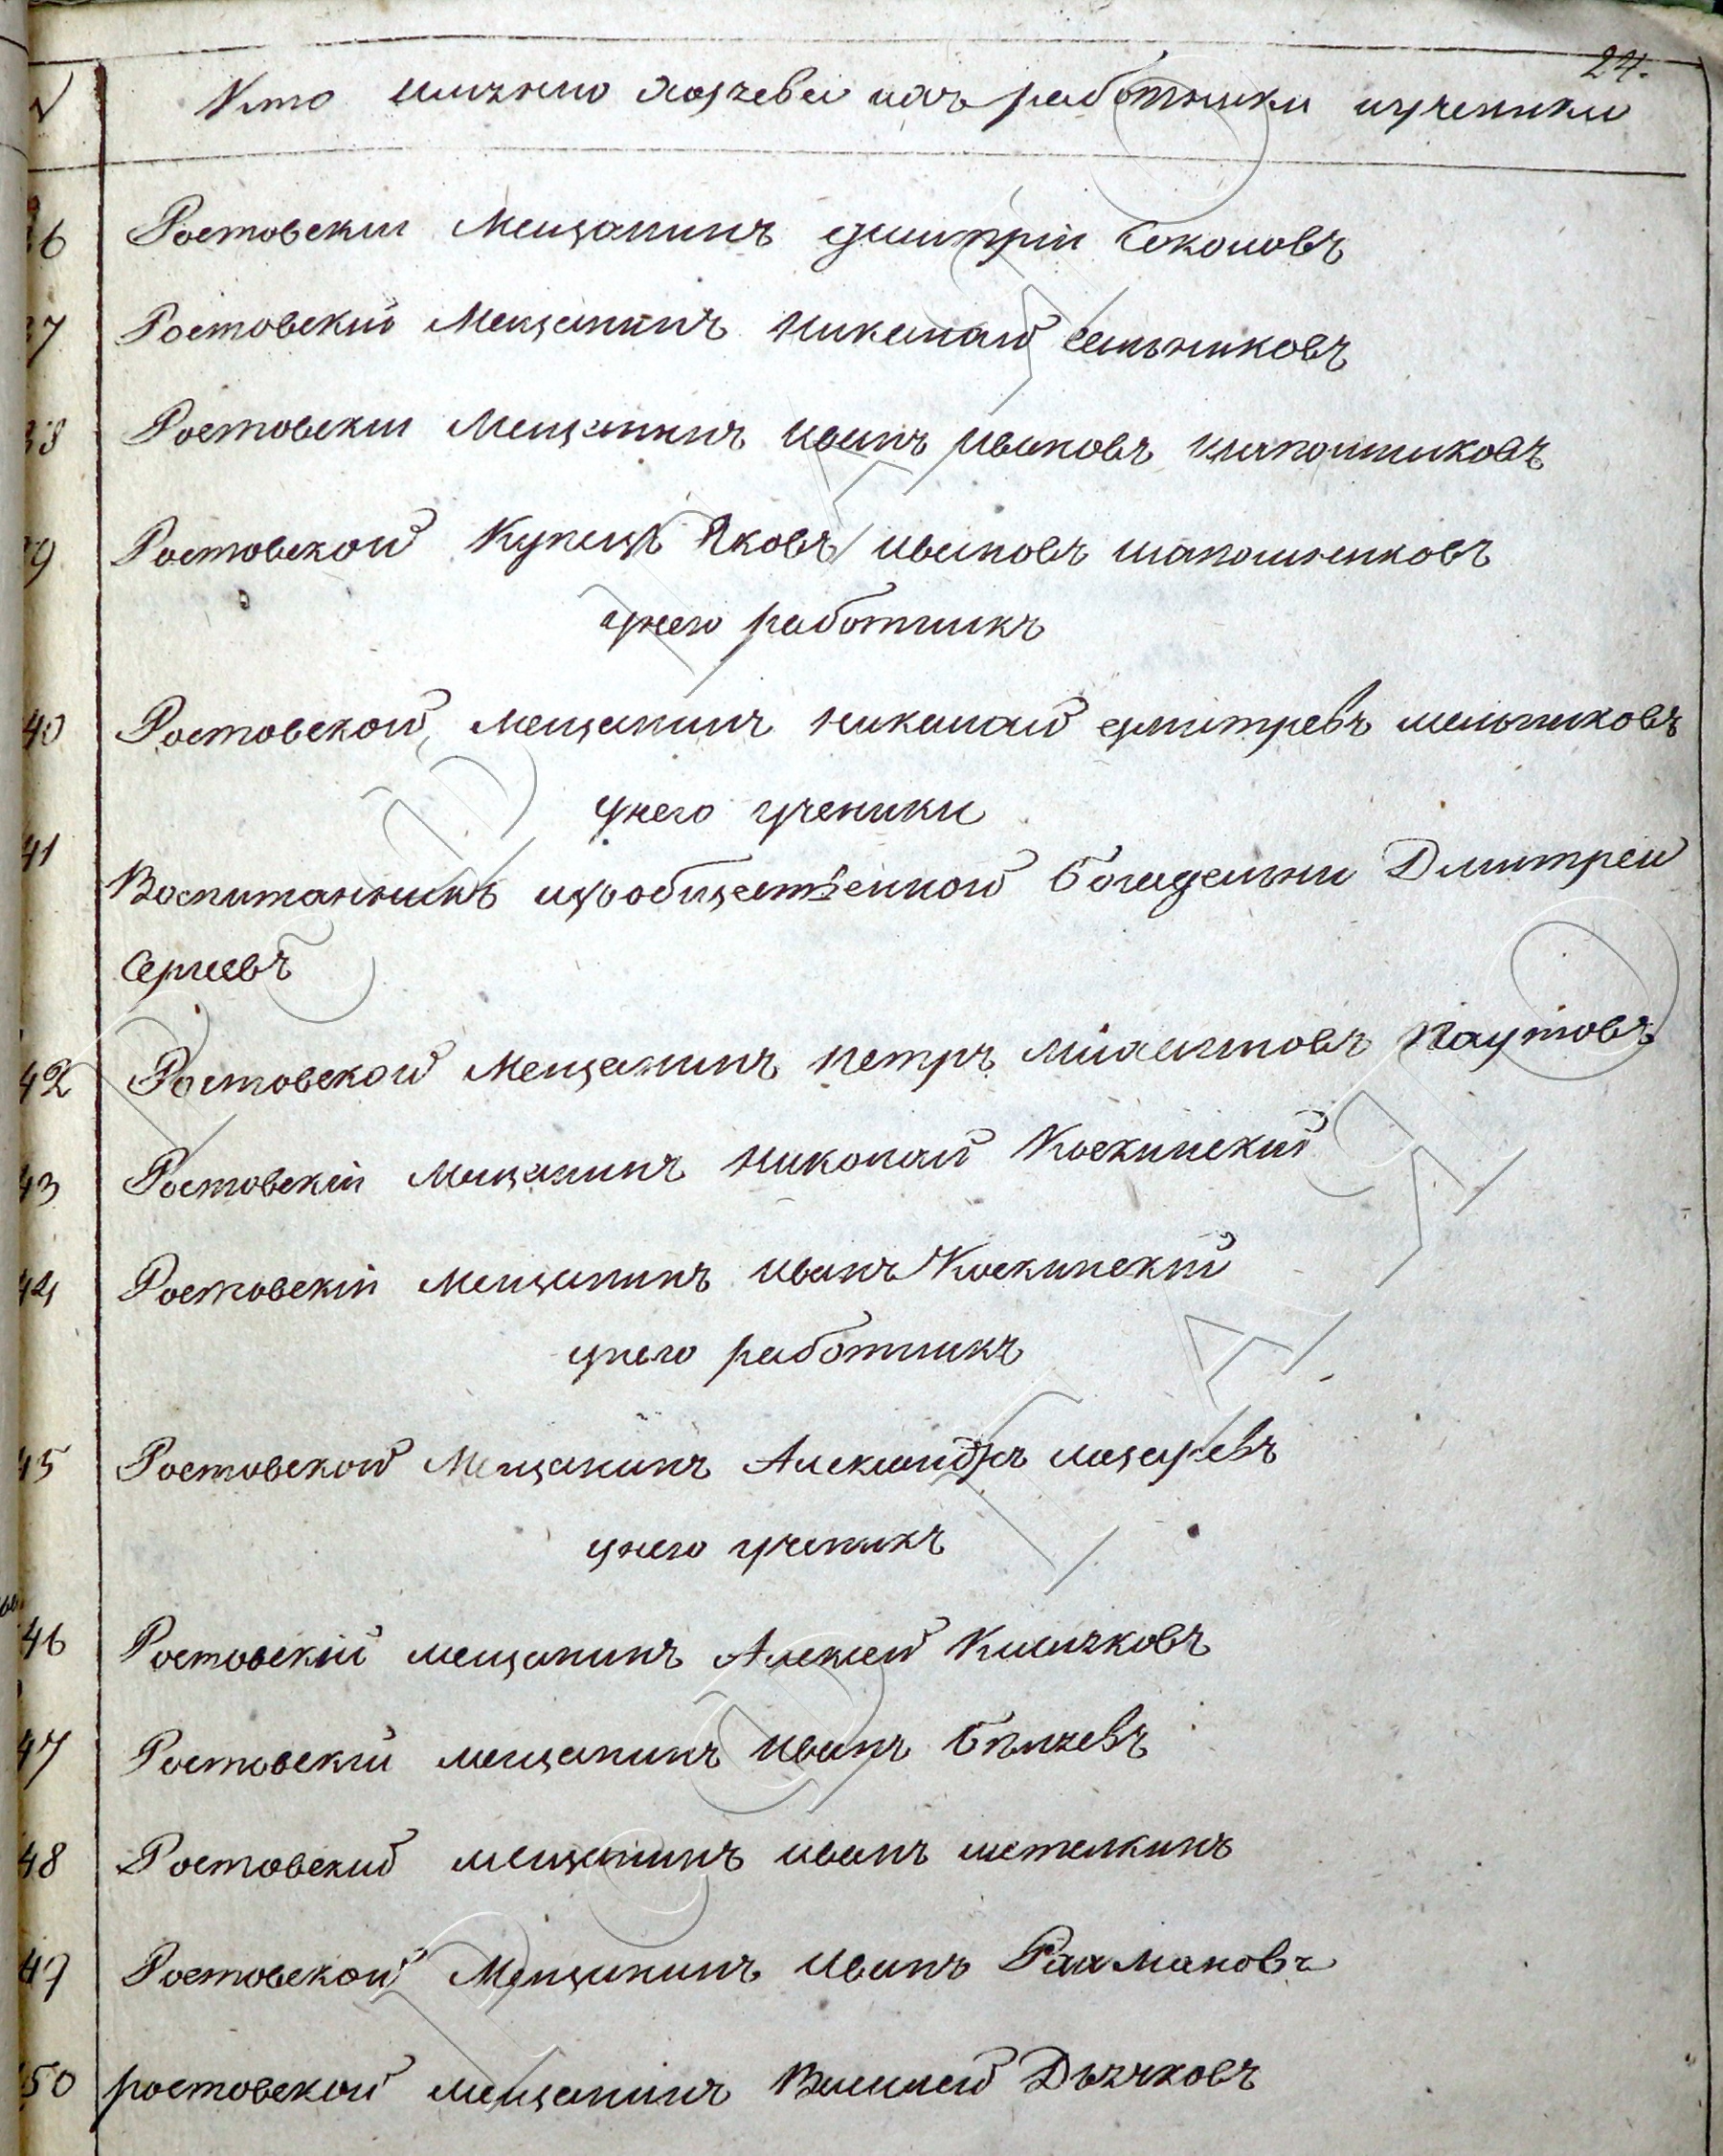 24.
№ Кто имянно хозяеваи ихъ работники иученики
36 Ростовскии Мещанинъ дмитрїи Соколовъ
37 Ростовский Мещанинъ николай сальниковъ
38 Ростовскии Мещанинъ иванъ ивановъ шапошниковъ
39 Ростовской Купецъ Яковъ ивановъ шапошниковъ
унего работникъ
40 Ростовской мещанинъ николай дмитревъ мельниковъ
унего ученики
41
Воспитанникъ изъобщественной богадельни Дмитреи
Сергеевъ
42 Ростовской мещанинъ петръ Паутовъ
43 Ростовскїи мещанинъ николай
44 Ростовскїи мещанинъ иванъ
унего работникъ
45 Ростовской Мещанинъ Александръ лазаревъ
унего ученикъ
46 Ростовскїй мещанинъ Алексей Клычковъ
47 Ростовскїи мещанинъ иванъ
48 Ростовский мещанинъ иванъ метелкинъ
49 Ростовской Мещанинъ иванъ Рахмановъ
50 ростовской мещанинъ Василей Дьячковъ